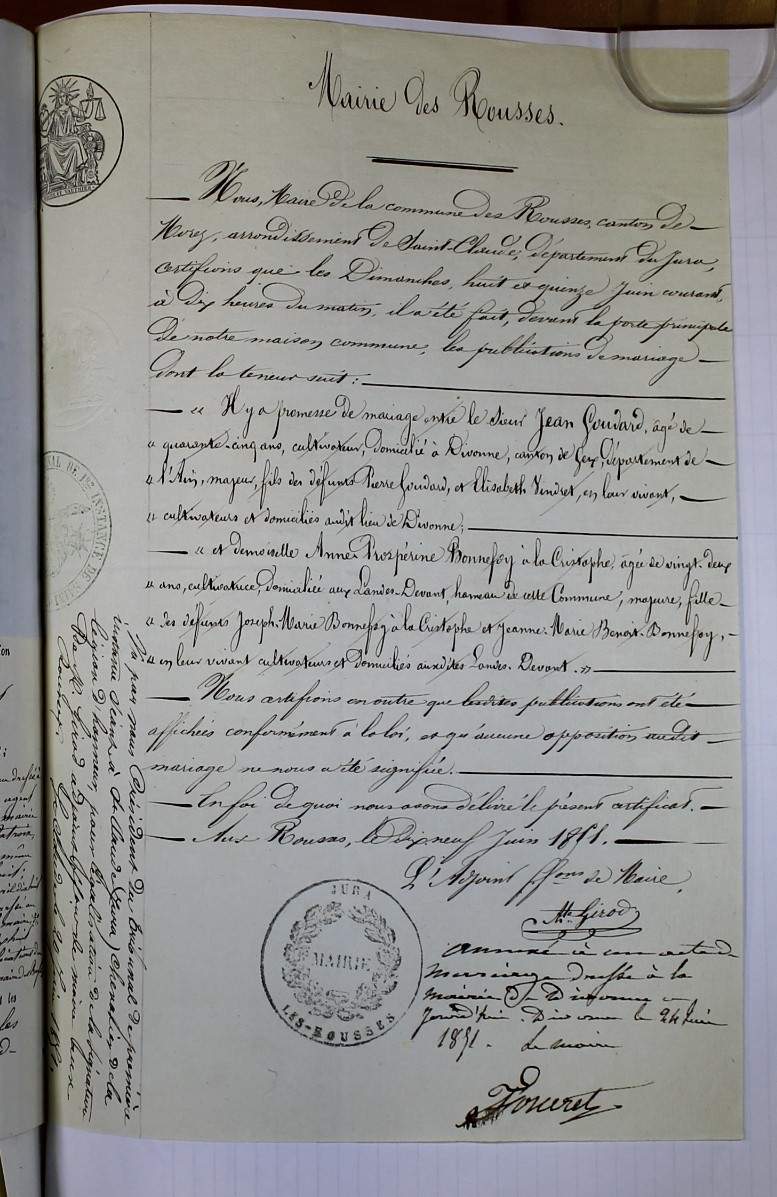 Mairie des Rousses.
Nous, Maire de la commune des Rousses, canton de
Morez, arrondissement de Saint-Claude, département du Jura,
certifions que les Dimanches, huit et quinze Juin courant,
à dix heures du matin, il a été fait, devant la porte principale
de notre maison commune, les publications de mariage
dont la teneur suit :
" Il y a promesse de mariage entre le sieur Jean Goudard, âgé de
" quarante-cinq ans, cultivateur, domicilié à Divonne, canton de Gex, département de
" l'Ain, majeur, fils des défunts Pierre Goudard, et Elisabeth Vendret, en leur vivant,
" cultivateurs et domiciliés audit lieu de Divonne;
" et demoiselle Anne-Prospérine Bonnefoy à la Cristophe, âgée de vingt-deux
" ans, cultivatrice, domiciliée aux Landes-Devant, hameau de cette Commune, majeure, fille
" des défunts Joseph-Marie Bonnefoy à la Cristophe et Jeanne-Marie Benoit-Bonnefoy,
" en leur vivant cultivateurs et domiciliés auxdites Landes-Devant. "
Nous certifions en outre que lesdites publications ont été
affichées conformément à la loi, et qu'aucune opposition audit
mariage ne nous a été signifiée.
En foi de quoi nous avons délivré le présent certificat.
Aux Rousses, le dix neuf Juin 1851.
L'Adjoint ffons de Maire,
Girod
JURA
MAIRIE
LES-ROUSSES
annexé à un acte de
mariage dressé à la
mairie de Divonne
jourd'hui. Divonne le 24 Juin
1851. Le maire
Vu par nous Président du tribunal de première
instance séant à St Claude (Jura) Chevalier de la
légion d'honneur, pour légalisation de la signature
de M. Girod adjoint ffons de maire aux
Rousses. St Claude le 20 Juin 1851.